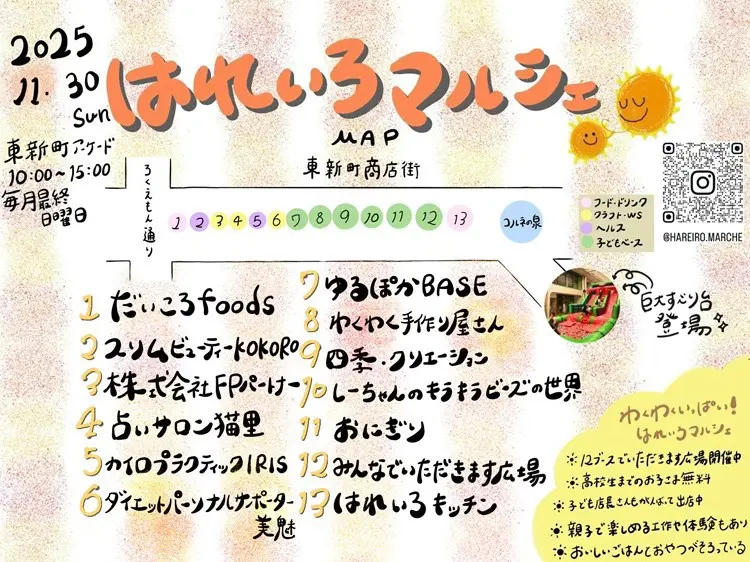 2025
11.30
Sun
はれいろマルシェ
MAP
東新町アーケード
10:00〜15:00
毎月最終
日曜日
東新町商店街
ろくえもん通り
1 2 3 4 5 6 7 8 9 10 11 12 13
コルネの泉
フード・ドリンク
クラフト・WS
ヘルス
子どもベース
@HAREIRO.MARCHE
巨大すべり台
登場
1 だいころfoods
2 スリムビューティーKOKORO
3 株式会社FPパートナー
4 占いサロン猫里
5 カイロプラクティックIRIS
6 ダイエットパーソナルサポーター
美魅
7 ゆるぽかBASE
8 わくわく手作り屋さん
9 四季・クリエーション
10 しーちゃんのキラキラビーズの世界
11 おにぎり
12 みんなでいただきます広場
13 はれいろキッチン
わくわくいっぱい!
はれいろマルシェ
12ブースでいただきます広場開催中
高校生までのお子さま無料
子ども店長さんもがんばって出店中
親子で楽しめる工作や体験もあり
おいしいごはんとおやつがそろっている